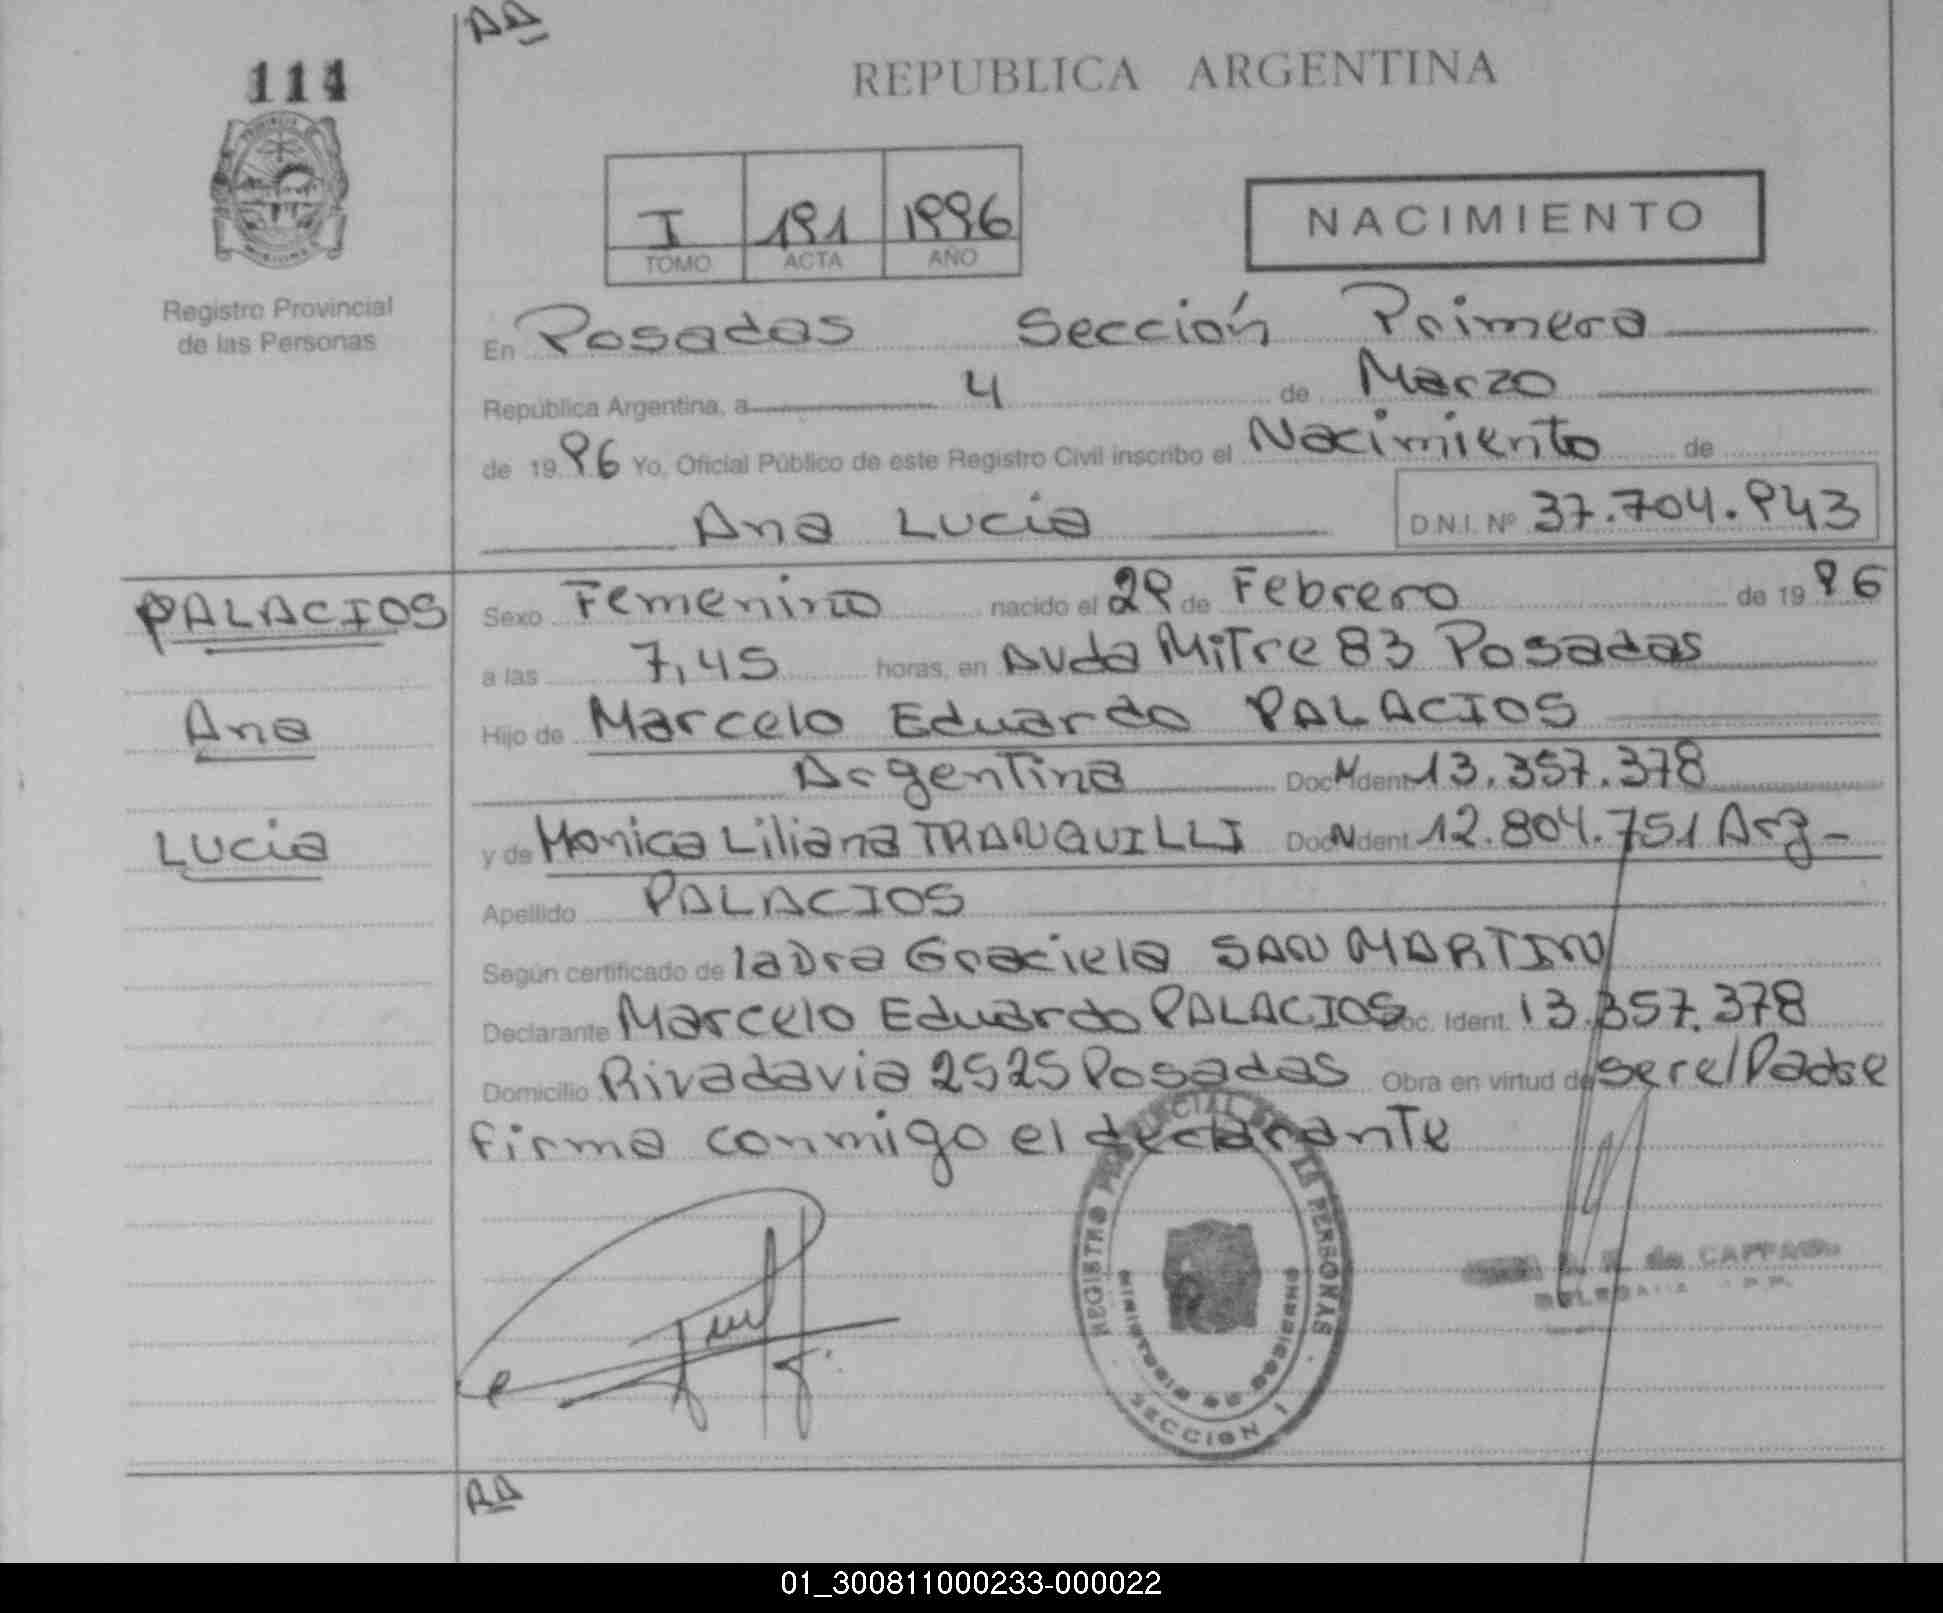 AA
114
REPUBLICA ARGENTINA
I 191 1996
TOMO ACTA AÑO
NACIMIENTO
Registro Provincial
de las Personas
En Posadas Sección Primera
República Argentina, a 4 de Marzo
de 19 96 Yo, Oficial Público de este Registro Civil inscribo el Nacimiento de
Ana Lucia D.N.I. Nº 37.704.943
PALACIOS
Ana
Lucia
Sexo Femenino nacido el 29 de Febrero de 19 96
a las 7,45 horas, en Avda Mitre 83 Posadas
Hijo de Marcelo Eduardo PALACIOS
Argentina Doc. Ident. 13.357.378
y de Monica Liliana TRANQUILLI Doc. Ident. 12.804.751 Arg-
Apellido PALACIOS
Según certificado de la Dra Graciela SAN MARTIN
Declarante Marcelo Eduardo PALACIOS Doc. Ident. 13.357.378
Domicilio Rivadavia 2525 Posadas Obra en virtud de ser el Padre
firma conmigo el declarante
REGISTRO PROVINCIAL DE LAS PERSONAS
MINISTERIO DE GOBIERNO
SECCION 1
de
AA
01_300811000233-000022